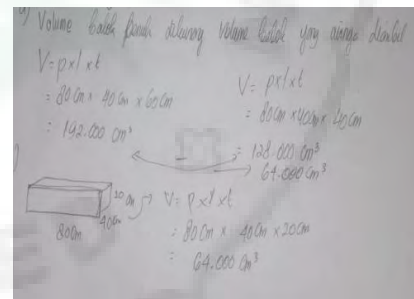 Volume balok penuh dikurang Volume balok yng airnya diambil
V = p x l x t
= 80 cm x 40 cm x 60 cm
= 192.000 cm³
V = p x l x t
= 80 cm x 40 cm x 40 cm
= 128.000 cm³
64.000 cm³
20 cm
40 cm
80 cm
V = p x l x t
= 80 cm x 40 cm x 20 cm
= 64.000 cm³